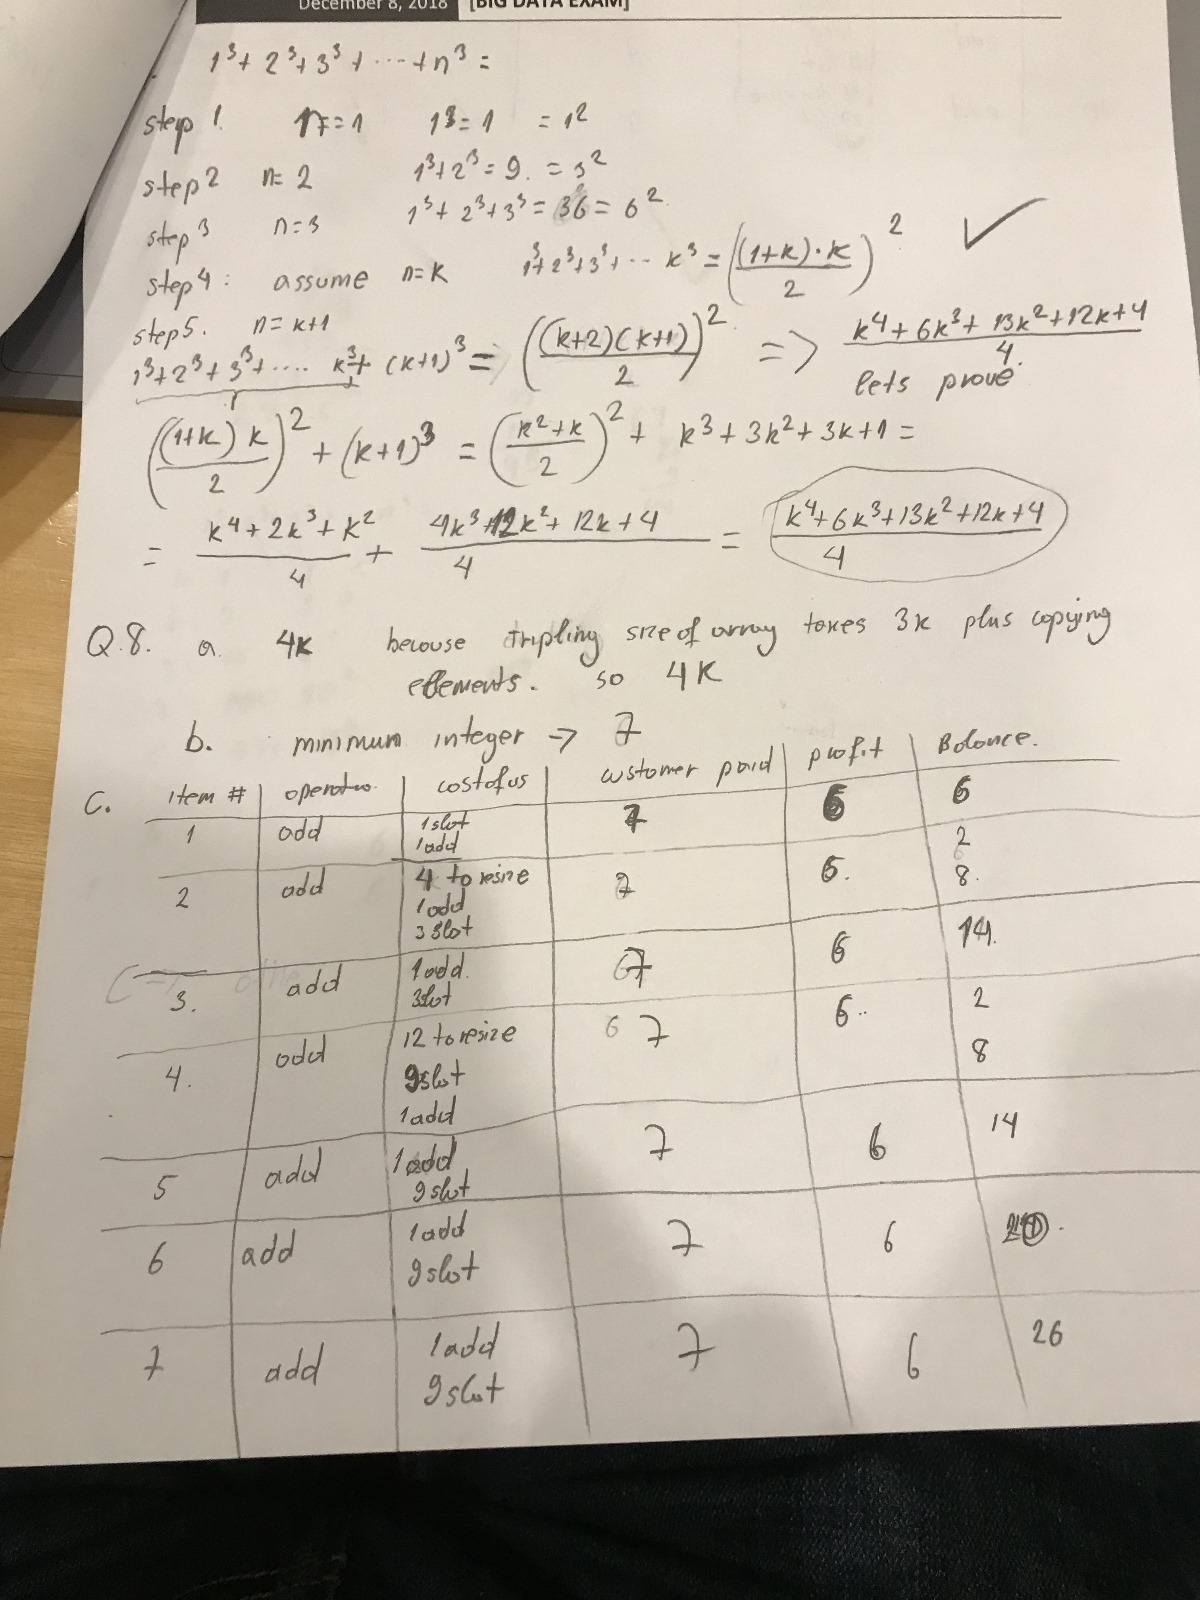 December 8, 2018 [BIG DATA EXAM]
1³ + 2³ + 3³ + ... + n³ =
step 1. n = 1 1³ = 1 = 1²
step 2 n = 2 1³ + 2³ = 9. = 3²
step 3 n = 3 1³ + 2³ + 3³ = 36 = 6².
step 4: assume n = k 1³ + 2³ + 3³ + ... k³ = ((1+k)·k / 2)² ✓
step 5. n = k+1
1³ + 2³ + 3³ + .... k³ + (k+1)³ = ((k+2)(k+1) / 2)² => (k⁴ + 6k³ + 13k² + 12k + 4) / 4.
lets prove
((1+k) k / 2)² + (k+1)³ = ((k² + k) / 2)² + k³ + 3k² + 3k + 1 =
= (k⁴ + 2k³ + k²) / 4 + (4k³ + 12k² + 12k + 4) / 4 = (k⁴ + 6k³ + 13k² + 12k + 4) / 4
Q.8. a. 4k becouse tripling size of array takes 3k plus copying
elements. so 4k
b. minimum integer -> 7
C. item # operatıo. cost of us customer paid profit Balance.
1 add 1 slot 7 6 6
1 add
2 add 4 to resize 7 6. 2
1 add 8.
3 slot
3. add 1 add. 7 6 14.
3 slot
4. add 12 to resize 7 6.. 2
9 slot 8
1 add
5 add 1 add 7 6 14
9 slot
6 add 1 add 7 6 20.
9 slot
7 add 1 add 7 6 26
9 slot